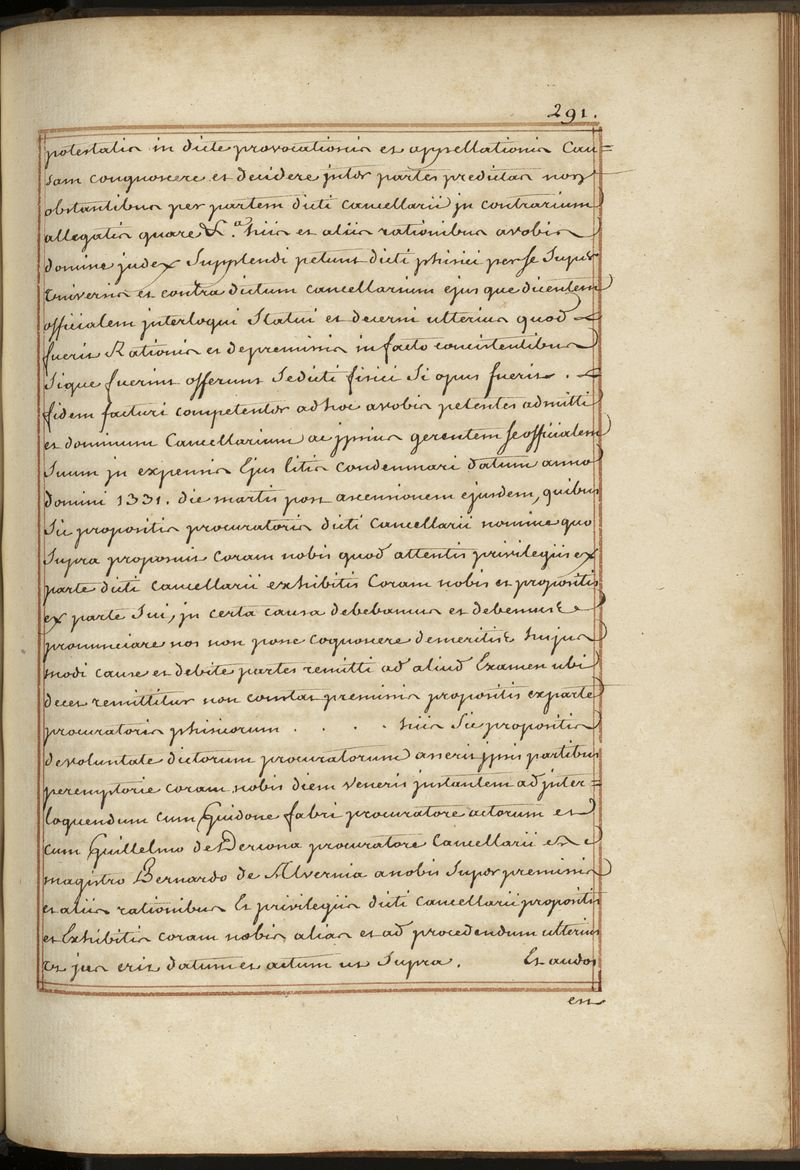 291.
potestatis in dicte provocationis et appellationis Cau=
sam congnoscere et decidere jnter partes predictas non
obstantibus per partem dicti cancellarii jn contrarium
allegatis quare &.a hiis et aliis rationibus avobis
domine judex Supplendi petunt dicti phisici per se Super
Universis et contra dictum cancellarium ejus que dicentem
officialem jnterloqui Statui et decerni ulterius quod
fuerit Rationis et de premissis in facto concistentibus
Si que fuerint offerunt Se dicti fisici Si opus fuerit .
fidem facturi competenter ad hoc avobis petentes admitti
et dominum Cancellarium ac jpsius gerentem se officialem
Suum jn expensis Ejus litis condemnari datum anno
domini 1331. die martis post ascensionem ejusdem, quibus
Sic propositis procuratoris dicti Cancellarii nomine quo
Supra proposuit coram nobis quod attentis privilegiis ex
parte dicti cancellarii exhibitis Coram nobis et propositis
ex parte Sui, jn certa causa debebamus et debemus
pronunciare nos non posse cognoscere de meritis hujus
modi cause et debite partes remitti ad aliud Examen ubi
decet remittitur non constat premissis propositis ex parte
procuratoris phisicorum . . . . hiis Sic propositis
de voluntate dictorum procuratorum asseris jpsis partibus
peremptorie coram nobis diem veneris jnstantem ad jnter=
loquendum cum Guidone fabri procuratore actorum et
cum Guillelmo de Derions procuratore Cancellarii et
magistro Bernardo de Alvernia anobis Super premissis
et aliis rationibus Et privilegiis dicti Cancellarii propositis
et Exhibitis coram nobis, alias et ad procedendum ulterius
Ut jus erit datum et actum ut Supra. Et audos
en